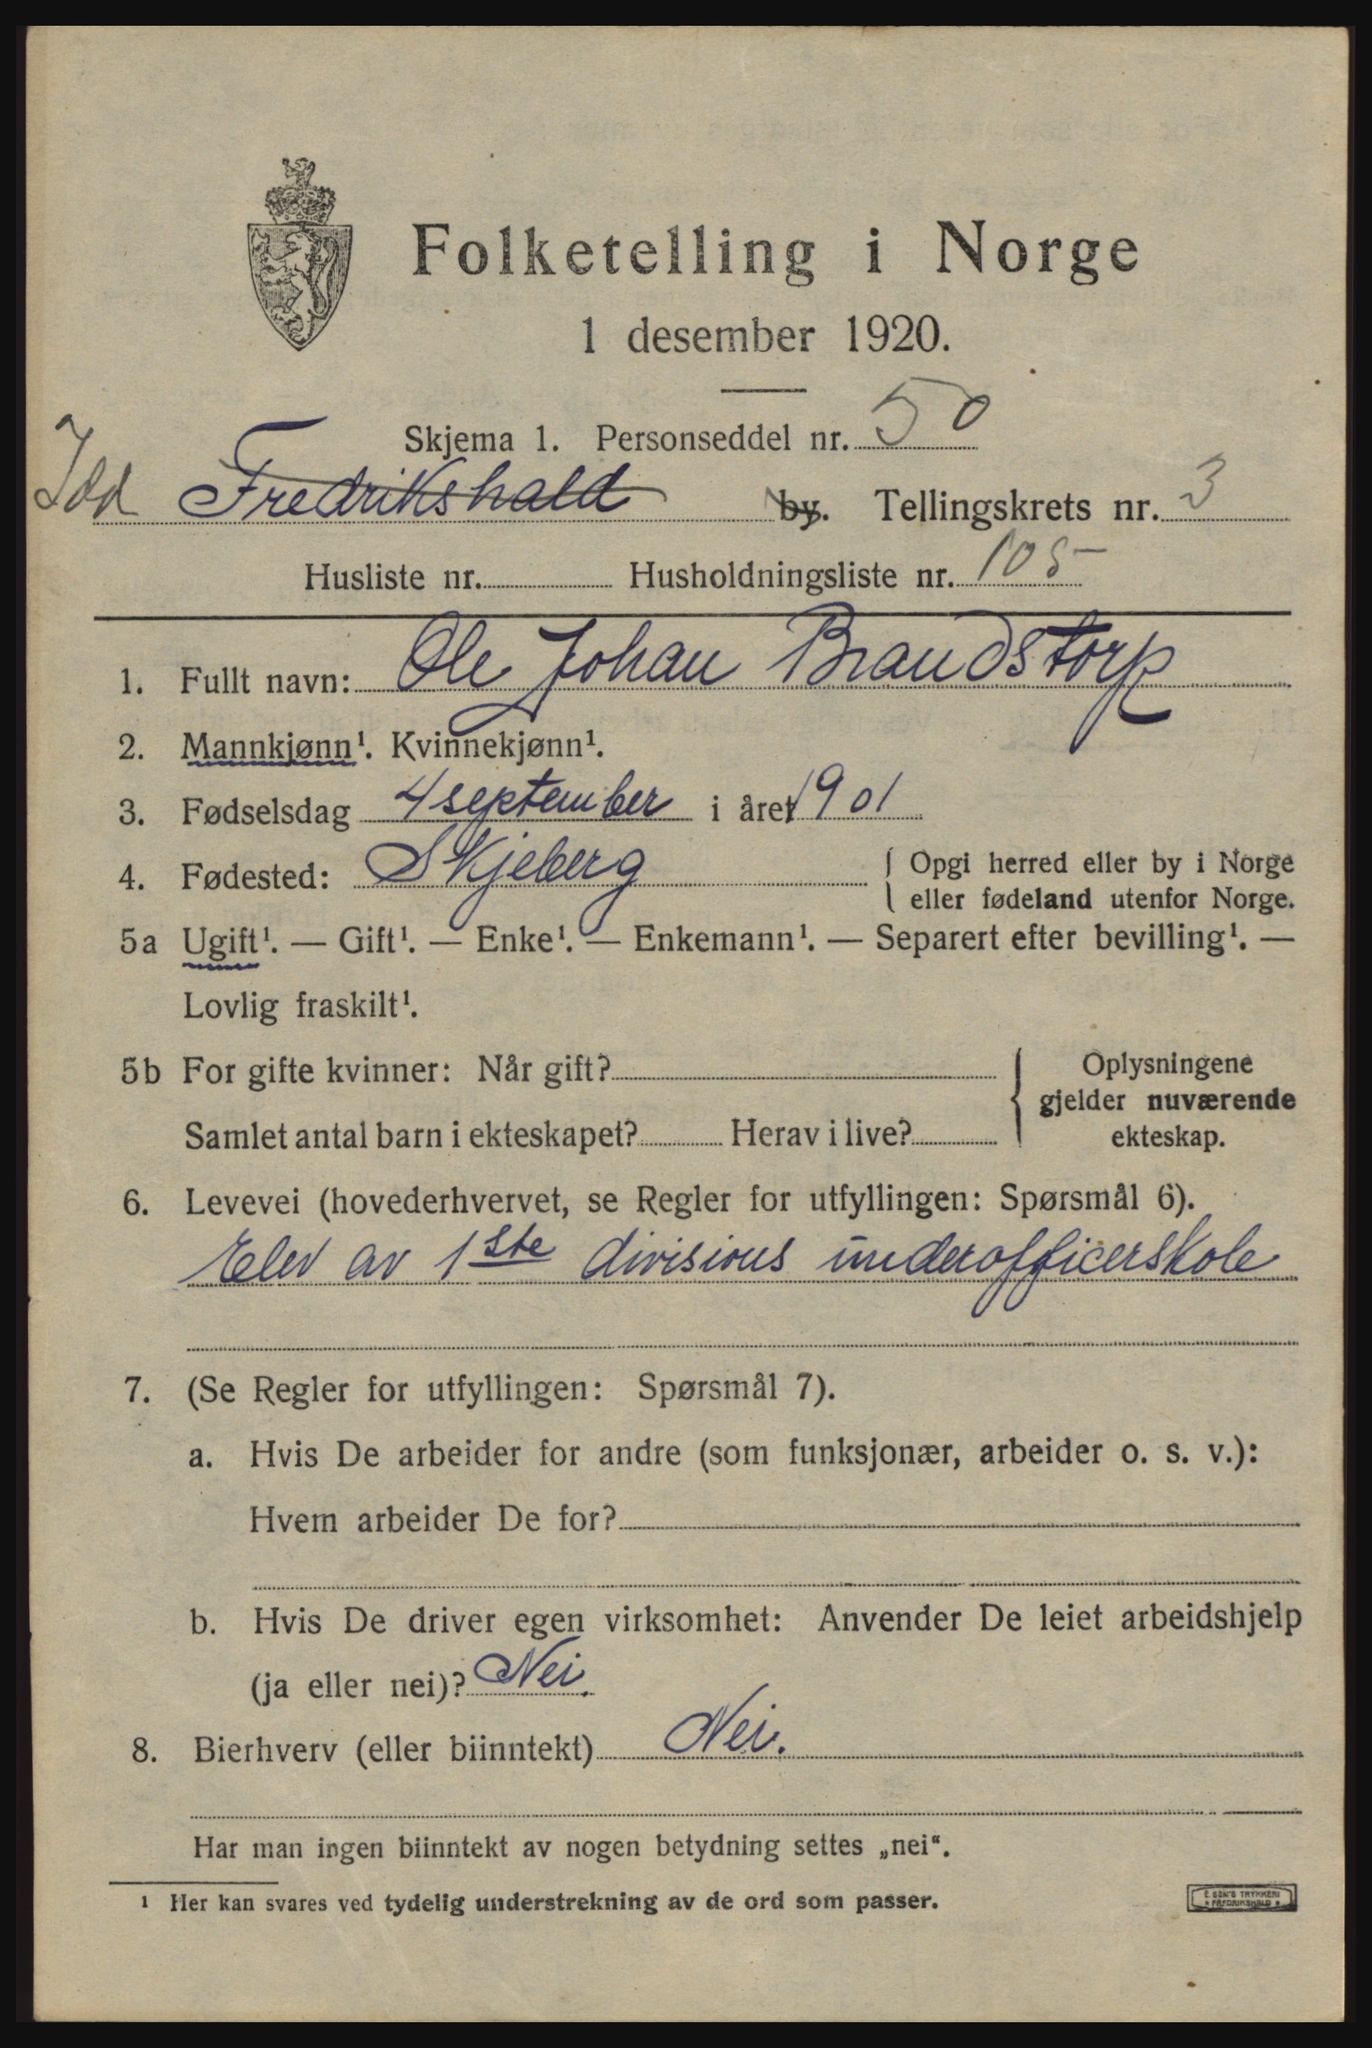 Folketelling i Norge
1 desember 1920.
Skjema 1. Personseddel nr. 50
Idd Fredrikshald by. Tellingskrets nr. 3
Husliste nr. Husholdningsliste nr. 105
1. Fullt navn: Ole Johan Brandstorp
2. Mannkjønn¹. Kvinnekjønn¹.
3. Fødselsdag 4 september i året 1901
4. Fødested: Skjeberg { Opgi herred eller by i Norge
eller fødeland utenfor Norge.
5a Ugift¹. — Gift¹. — Enke¹. — Enkemann¹. — Separert efter bevilling¹. —
Lovlig fraskilt¹.
5b For gifte kvinner: Når gift? { Oplysningene
gjelder nuværende
Samlet antal barn i ekteskapet? Herav i live? ekteskap.
6. Levevei (hovederhvervet, se Regler for utfyllingen: Spørsmål 6).
Elev av 1ste divisions underofficerskole
7. (Se Regler for utfyllingen: Spørsmål 7).
a. Hvis De arbeider for andre (som funksjonær, arbeider o. s. v.):
Hvem arbeider De for?
b. Hvis De driver egen virksomhet: Anvender De leiet arbeidshjelp
(ja eller nei)? Nei.
8. Bierhverv (eller biinntekt) Nei.
Har man ingen biinntekt av nogen betydning settes „nei“.
¹ Her kan svares ved tydelig understrekning av de ord som passer.
E. SEM'S TRYKKERI
• FREDRIKSHALD •